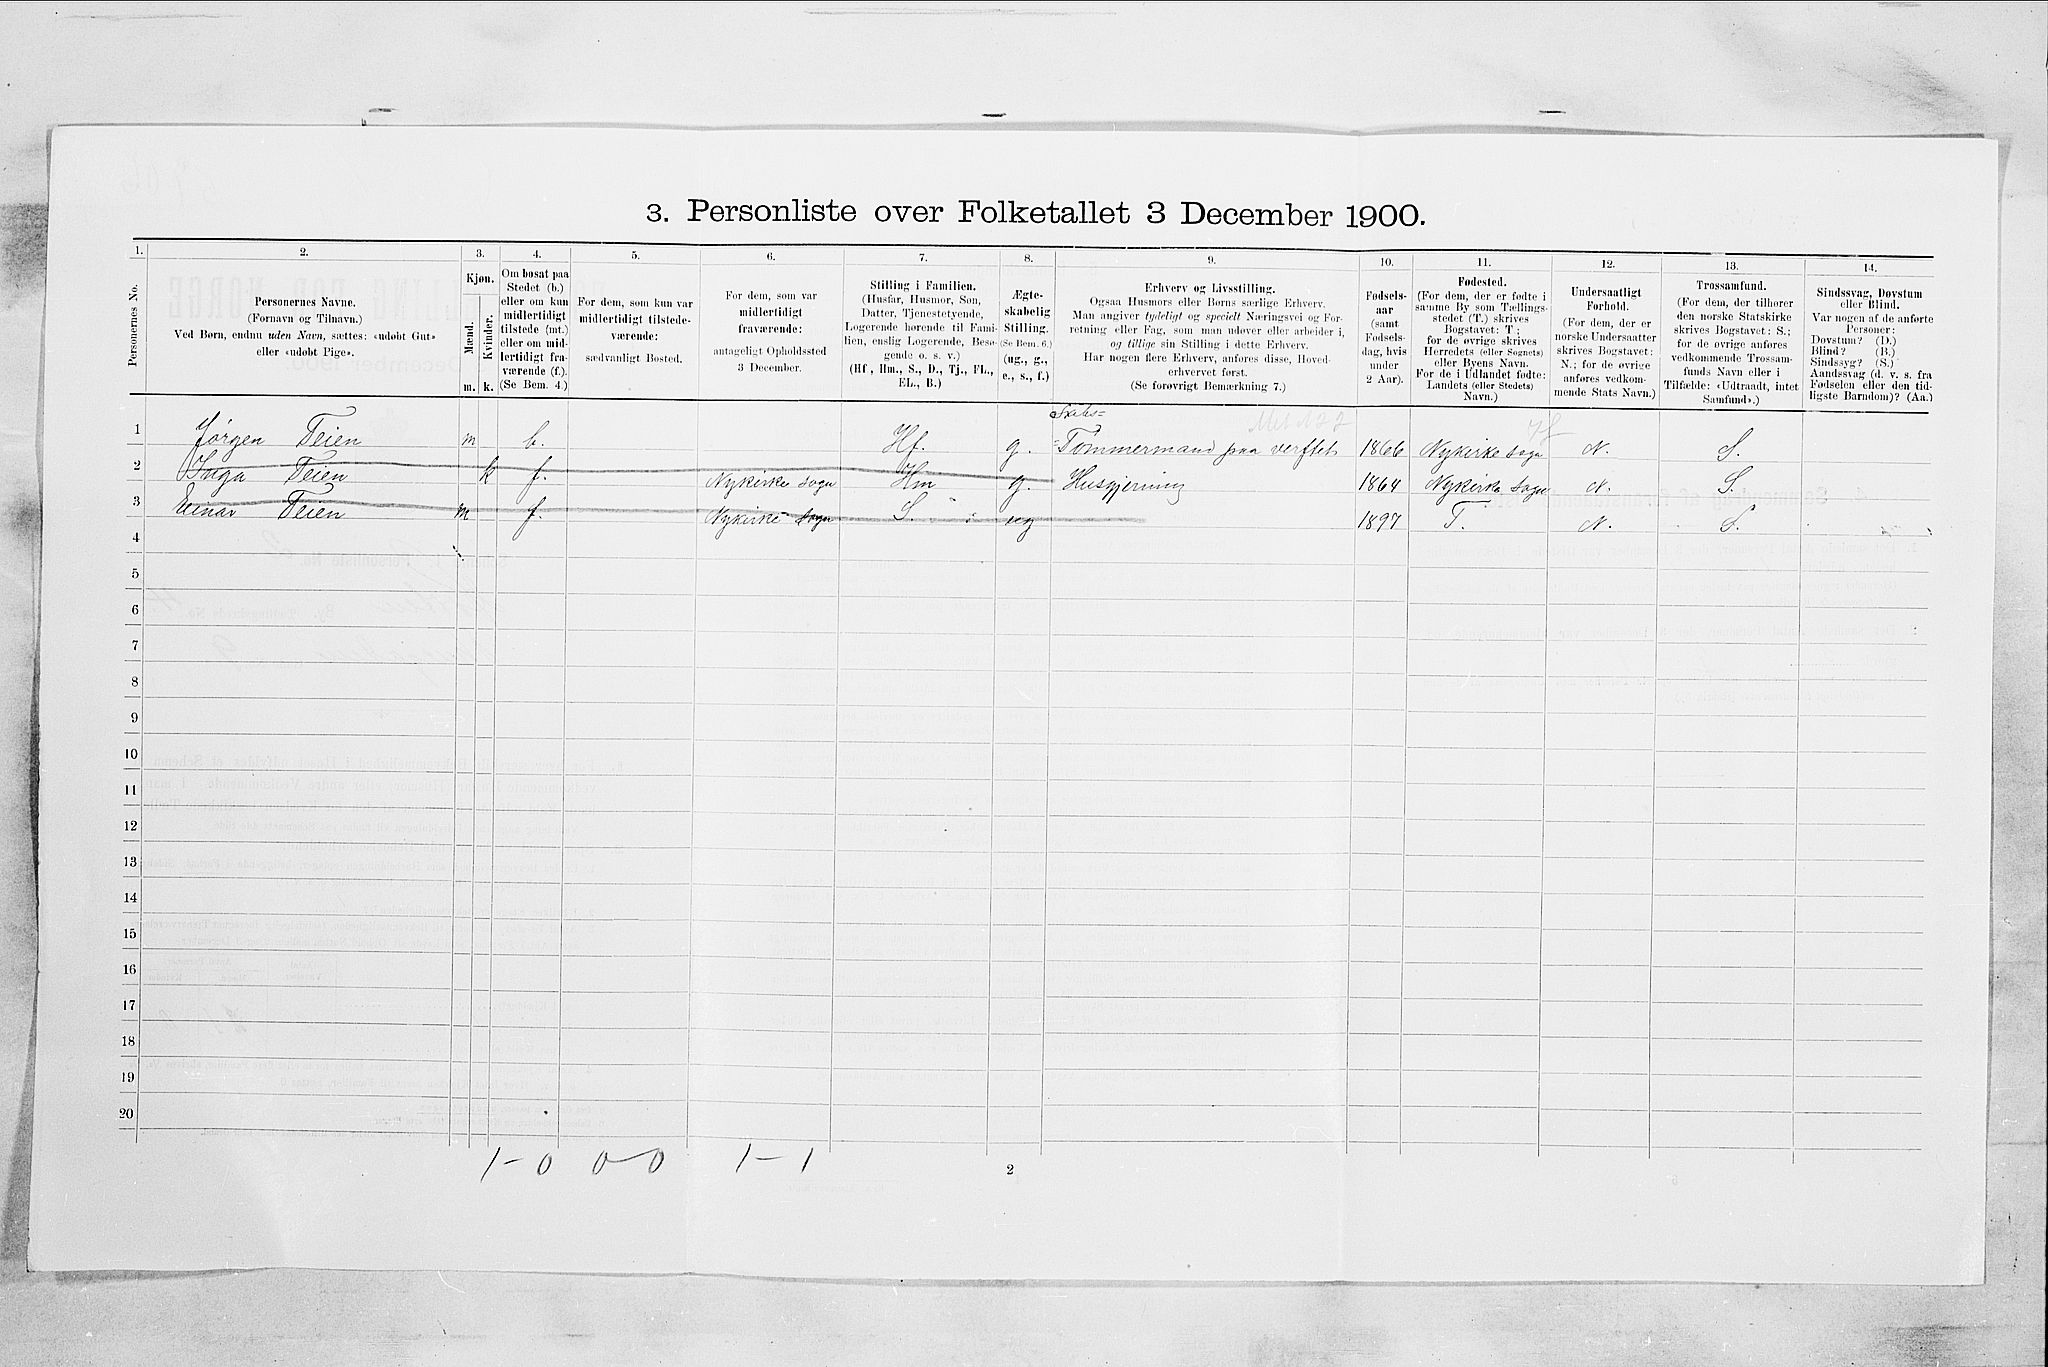 3. Personliste over Folketallet 3 December 1900.
1. 2. 3. 4. 5. 6. 7. 8. 9. 10. 11. 12. 13. 14.
Personernes No.
Personernes Navne.
(Fornavn og Tilnavn.)
Ved Børn, endnu uden Navn, sættes: «udøbt Gut»
eller «udøbt Pige».
Kjøn.
Mænd.
Kvinder.
m. k.
Om bosat paa
Stedet (b.)
eller om kun
midlertidigt
tilstede (mt.)
eller om mid-
lertidigt fra-
værende (f.).
(Se Bem. 4.)
For dem, som kun var
midlertidigt tilstede-
værende:
sædvanligt Bosted.
For dem, som var
midlertidigt
fraværende:
antageligt Opholdssted
3 December.
Stilling i Familien.
(Husfar, Husmor, Søn,
Datter, Tjenestetyende,
Logerende hørende til Fami-
lien, enslig Logerende, Besø-
gende o. s. v.)
(Hf., Hm., S., D., Tj., FL.,
EL., B.)
Ægte-
skabelig
Stilling.
(Se Bem. 6.)
(ug., g.,
e., s., f.)
Erhverv og Livsstilling.
Ogsaa Husmors eller Børns særlige Erhverv.
Man angiver tydeligt og specielt Næringsvei og For-
retning eller Fag, som man udøver eller arbeider i,
og tillige sin Stilling i dette Erhverv.
Har nogen flere Erhverv, anføres disse, Hoved-
erhvervet først.
(Se forøvrigt Bemærkning 7.)
Fødsels-
aar
(samt
Fødsels-
dag, hvis
under
2 Aar).
Fødested.
(For dem, der er fødte i
samme By som Tællings-
stedet (T.) skrives
Bogstavet: T.;
for de øvrige skrives
Herredets (eller Sognets)
eller Byens Navn.
For de i Udlandet fødte:
Landets (eller Stedets)
Navn.)
Undersaatligt
Forhold.
(For dem, der er
norske Undersaatter
skrives Bogstavet:
N.; for de øvrige
anføres vedkom-
mende Stats Navn.)
Trossamfund.
(For dem, der tilhører
den norske Statskirke
skrives Bogstavet: S.;
for de øvrige anføres
vedkommende Trossam-
funds Navn eller i
Tilfælde: «Udtraadt, intet
Samfund».)
Sindssvag, Døvstum
eller Blind.
Var nogen af de anførte
Personer:
Døvstum? (D.)
Blind? (B.)
Sindssyg? (S.)
Aandssvag (d. v. s. fra
Fødselen eller den tid-
ligste Barndom)? (Aa.)
Skibs=
1 Jørgen Teien m b. Hf. g. =Tømmermand paa verftet 1866 Nykirke Sogn N. S.
2 Inga Teien k f. Nykirke Sogn Hm g. Husgjerning 1864 Nykirke Sogn N. S.
3 Einar Teien m f. Nykirke Sogn S. ug 1897 T. N. S.
4
5
6
7
8
9
10
11
12
13
14
15
16
17
18
19
20
1-0 0-0 1-1
2